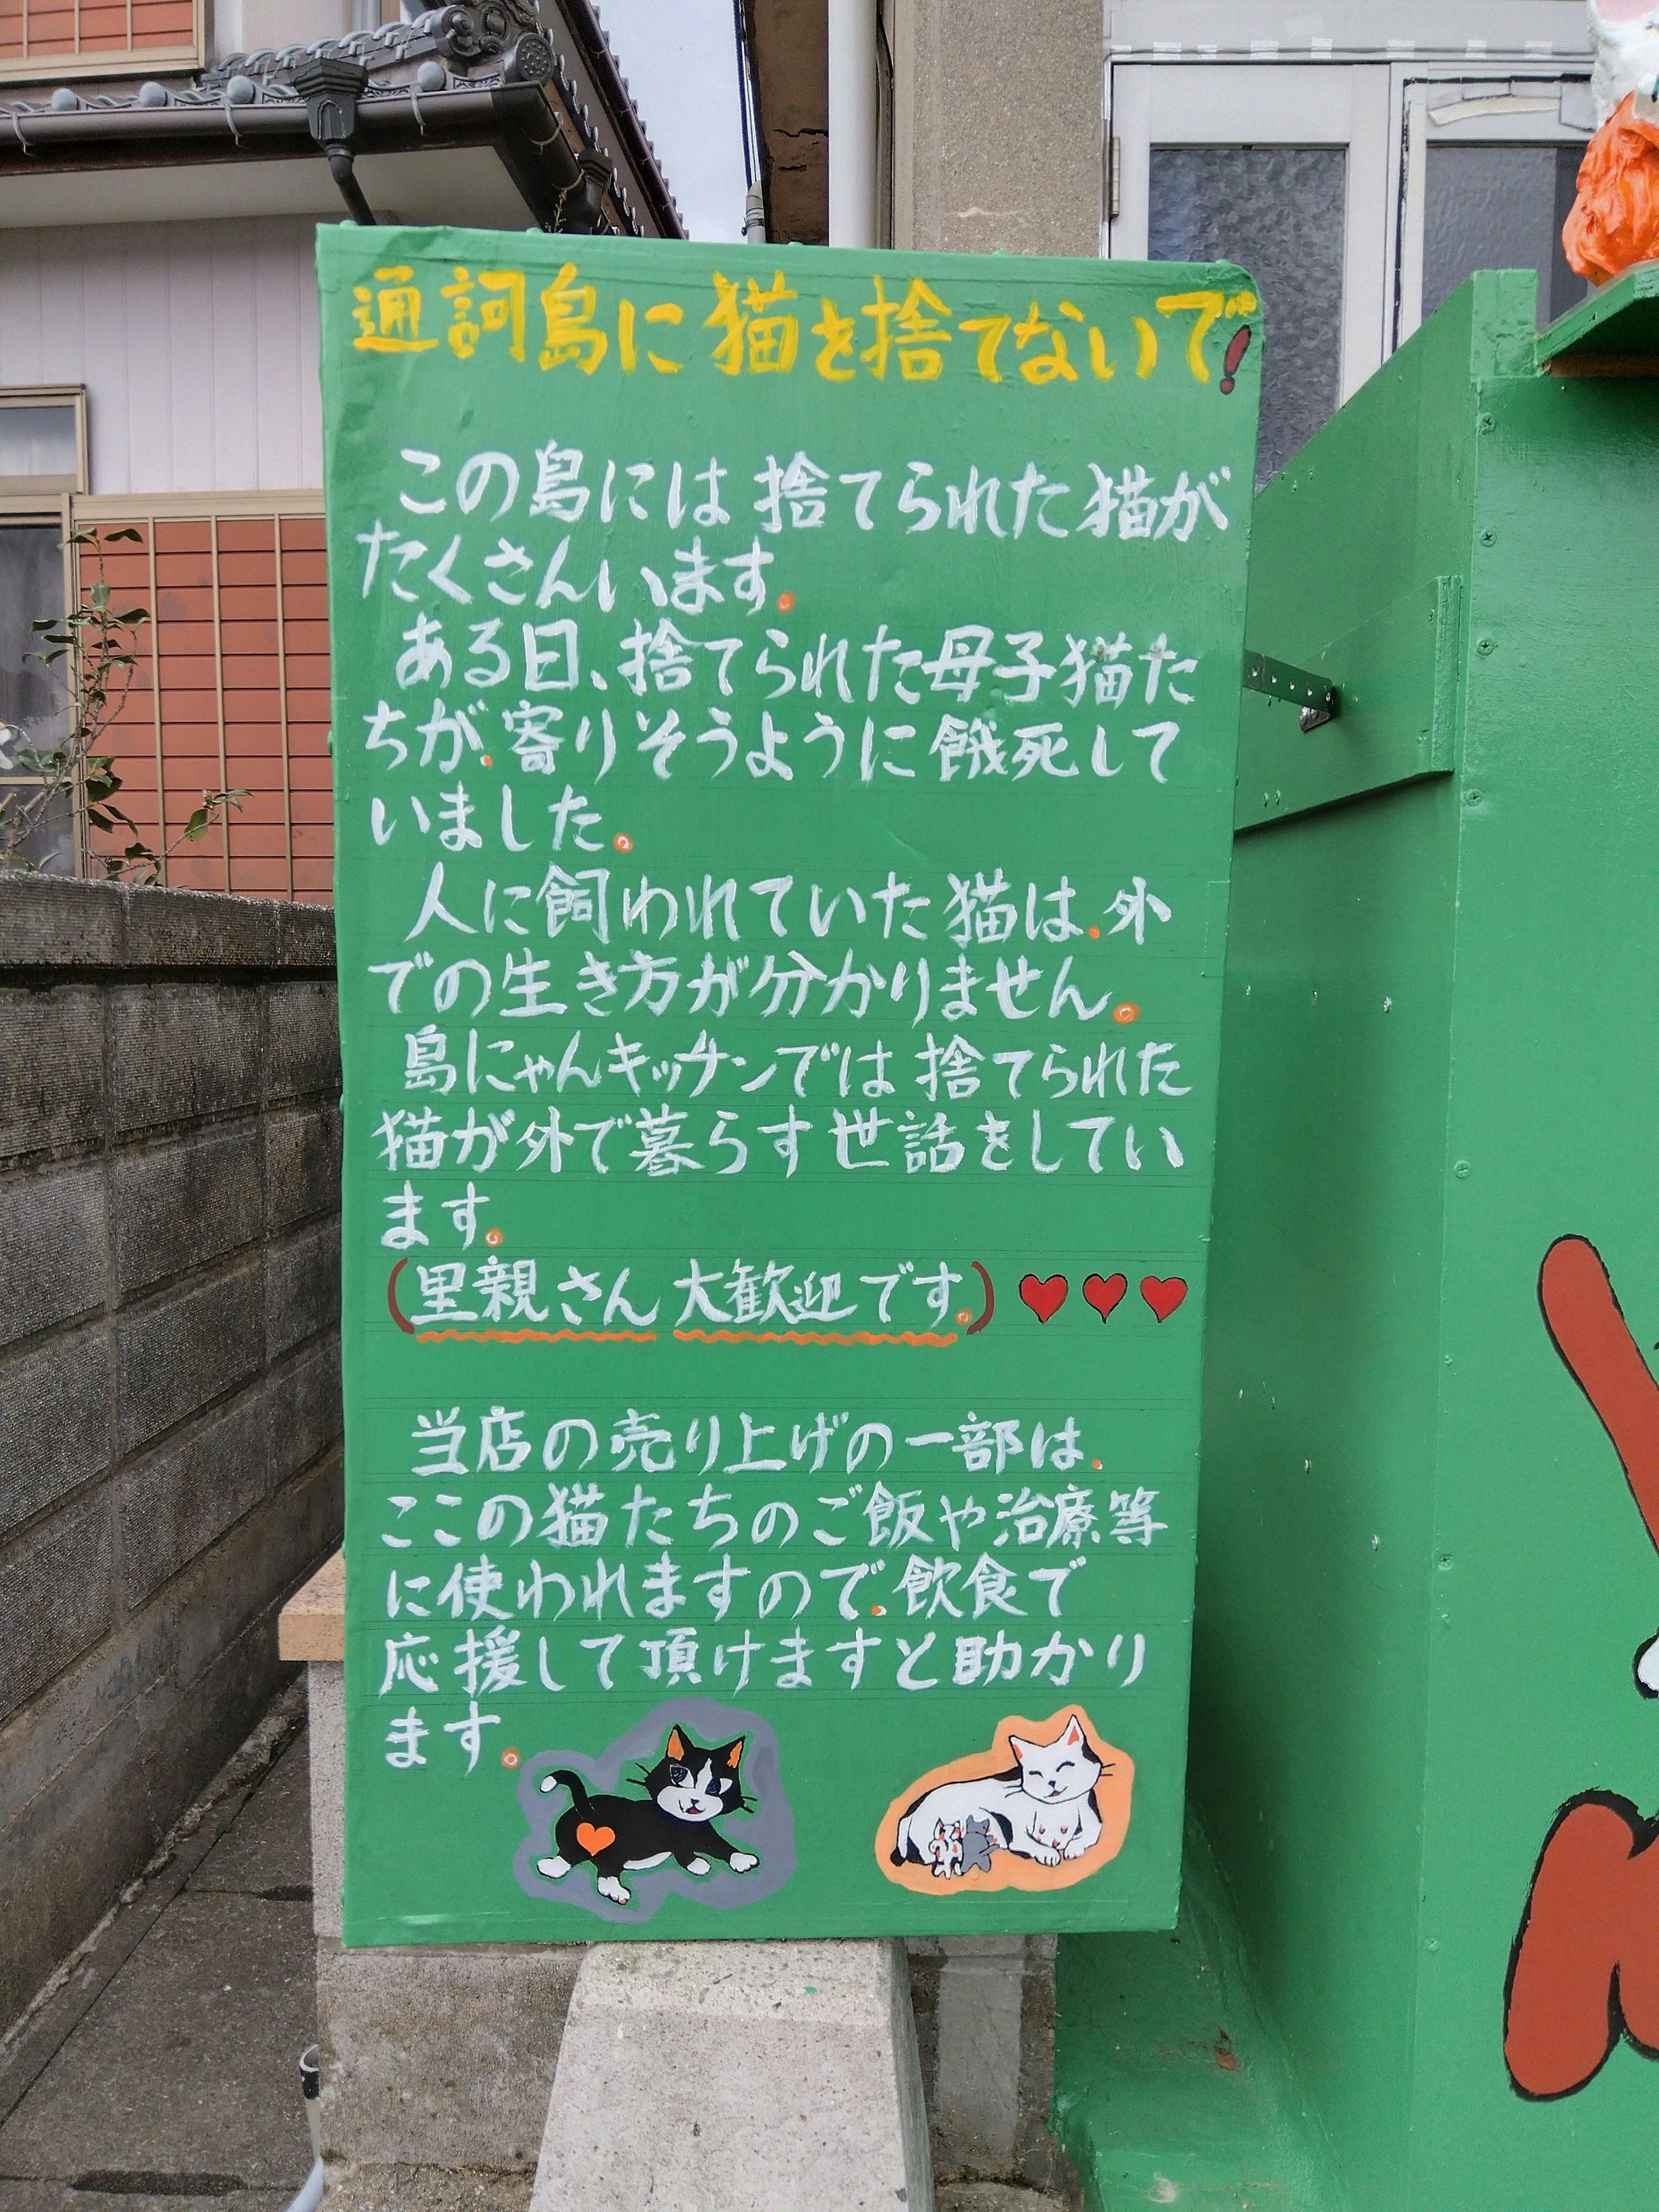 通詞島に猫を捨てないで!
この島には捨てられた猫が
たくさんいます。
ある日、捨てられた母子猫た
ちが、寄りそうように餓死して
いました。
人に飼われていた猫は、外
での生き方が分かりません。
島にゃんキッチンでは捨てられた
猫が外で暮らす世話をしてい
ます。
(里親さん大歓迎です。)♥♥♥
当店の売り上げの一部は、
ここの猫たちのご飯や治療等
に使われますので、飲食で
応援して頂けますと助かり
ます。